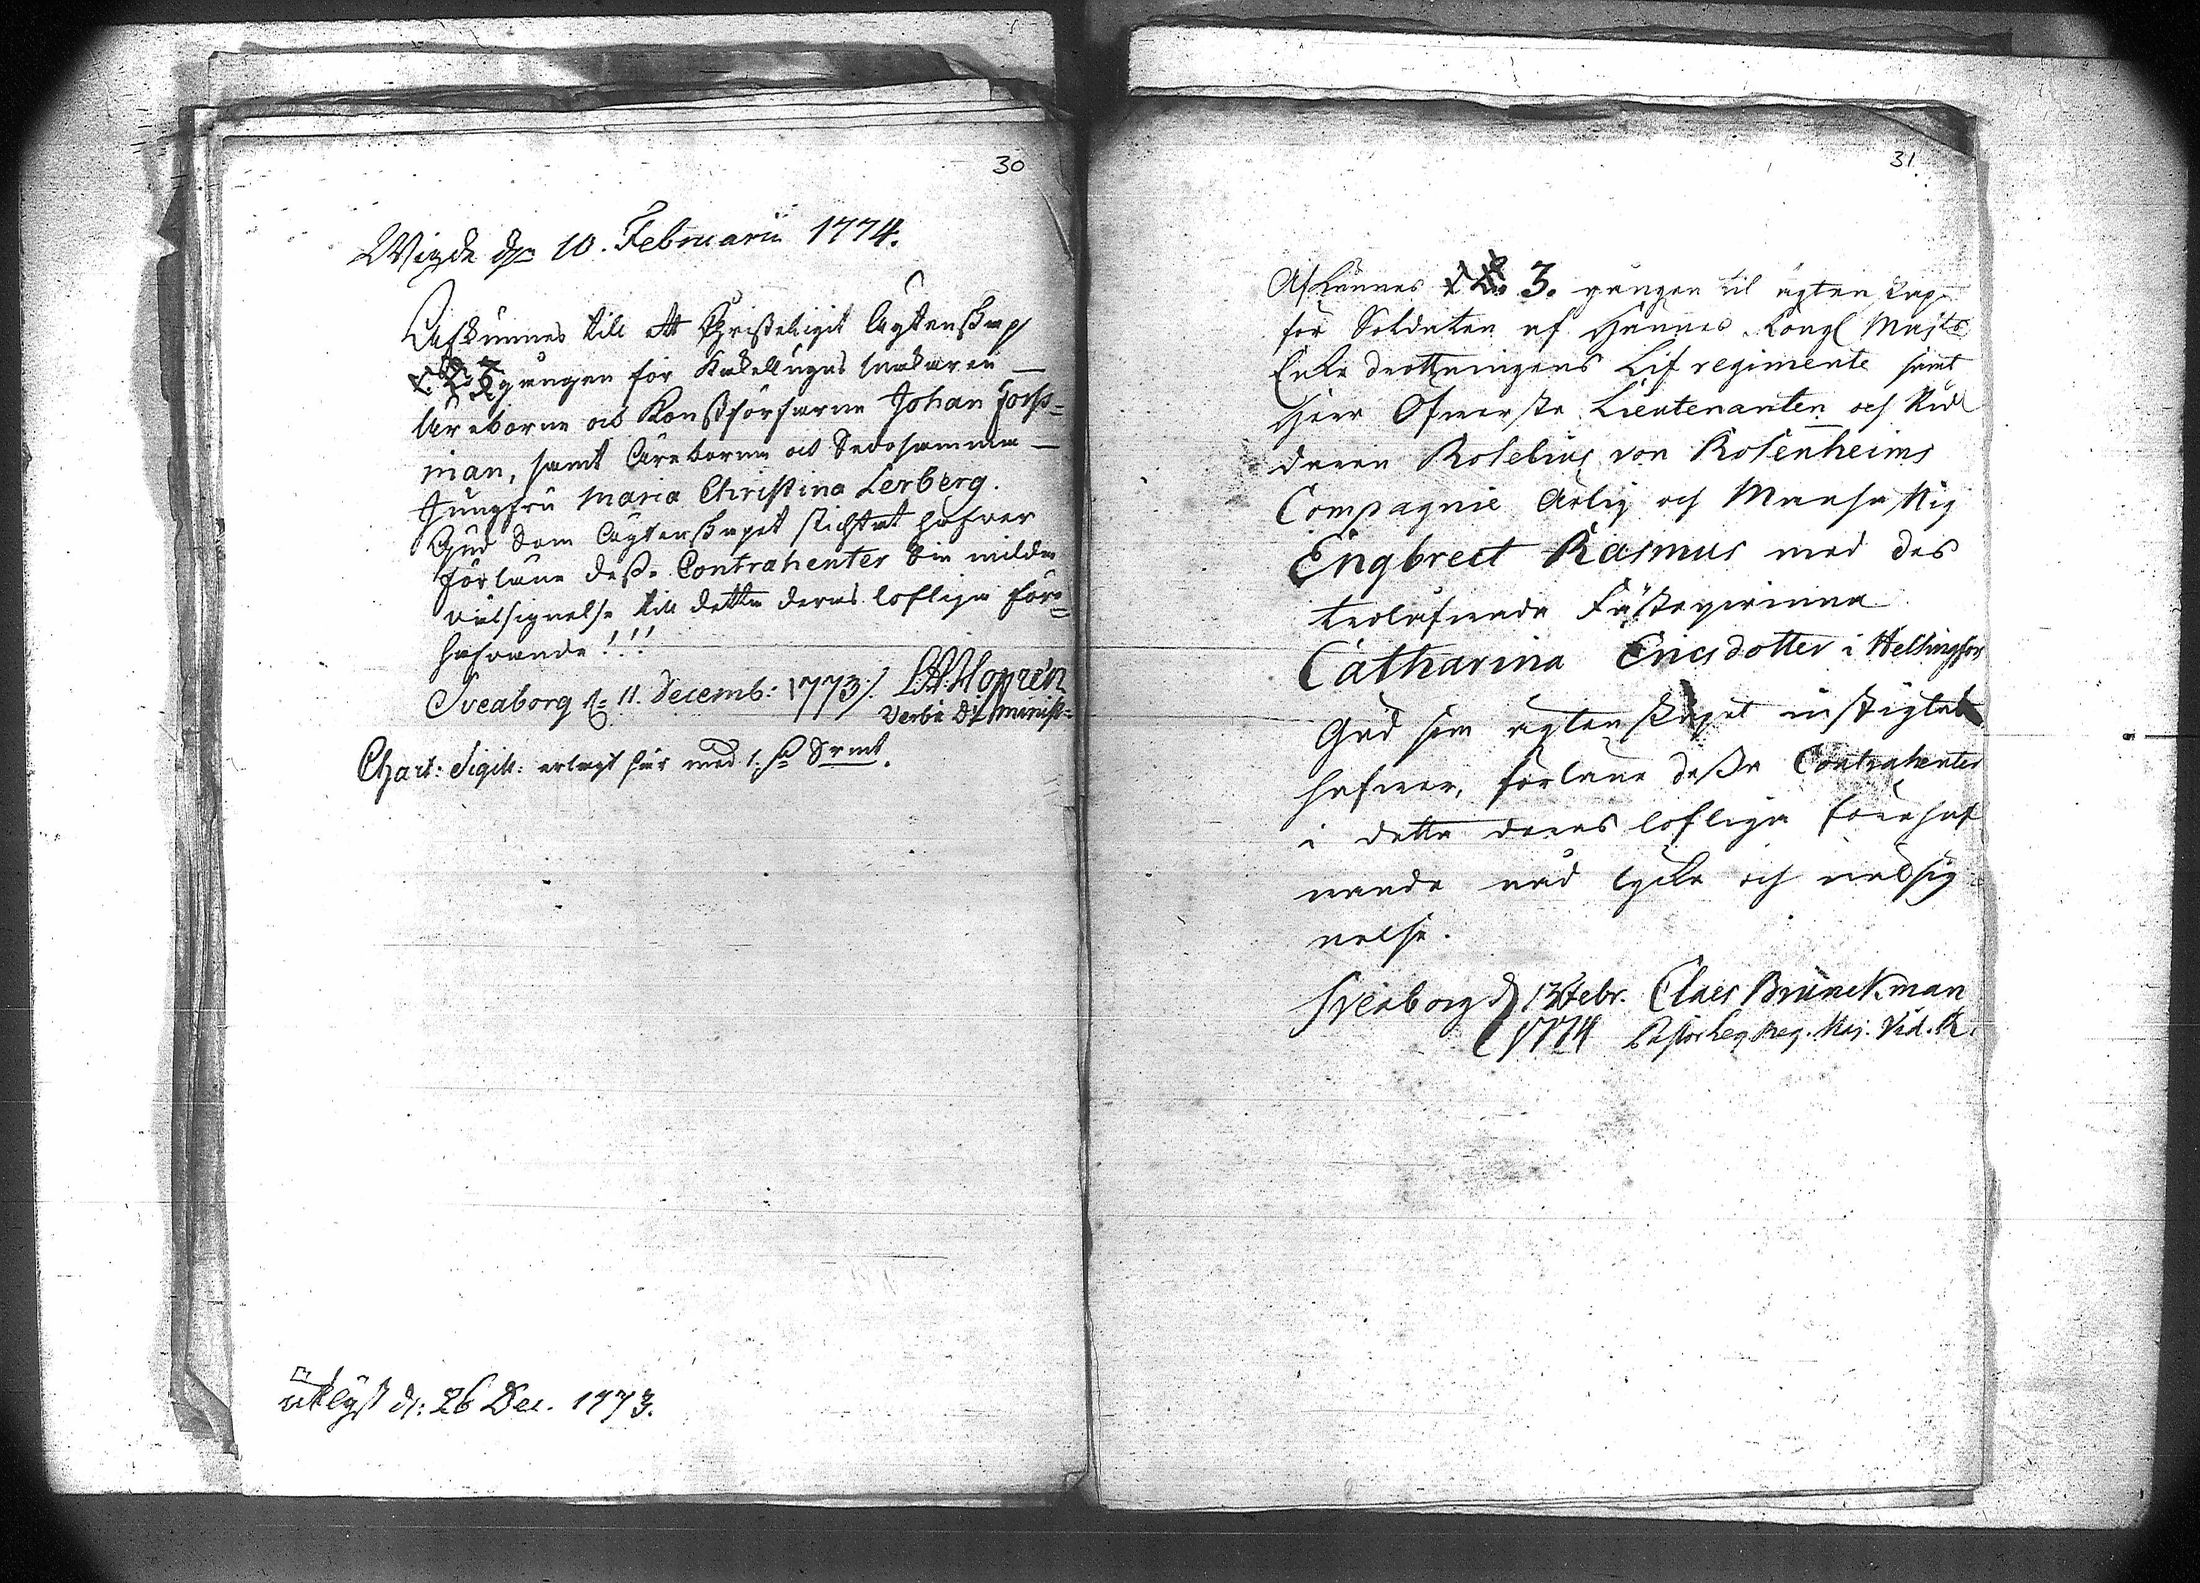 30
Wigde d. 10. Februarii 1774.
Afkunnes till ett Christeligit Ägtenskap
gången för Kakelugns makaren
Ärebarne och Konstförfarne Johan Forss=
man, samt Äreborna och Dedosamma
Jungfru Maria Christina Lerberg.
Gud som Ägtenskapet stichtat hafver
förläne desse Contrahenter sin milda
välsignelse till detta deras lofliga före=
hafvande!!!
Sveaborg d. 11. Decemb: 1773.
Verbi Di Minist:
Chart: Sigill: erlagt här med 1. Srmt.
utlyst d: 26 Dec. 1773.
31
Afkunnes 3. gången til ägtenskap
för Soldaten af Hennes Kongl Majts
Enke drottningens Lif regimente samt
Herr Öfwerste Lieutenanten och Rid
daren von Rosenheims
Compagnie Ärlig och Manhaftig
Engbrect Rasmus med des
trolofwade Fästeqwinna
Catharina Ericsdotter i Helsingfors
Gud som ägtenskapet instigtat
hafwer, förläne desse Contrahenter
i detta deras lofliga förehaf
wande nåd lycka och wälsig=
nelse.
Sveaborg d 13 Febr. Claes Brunckman
1774